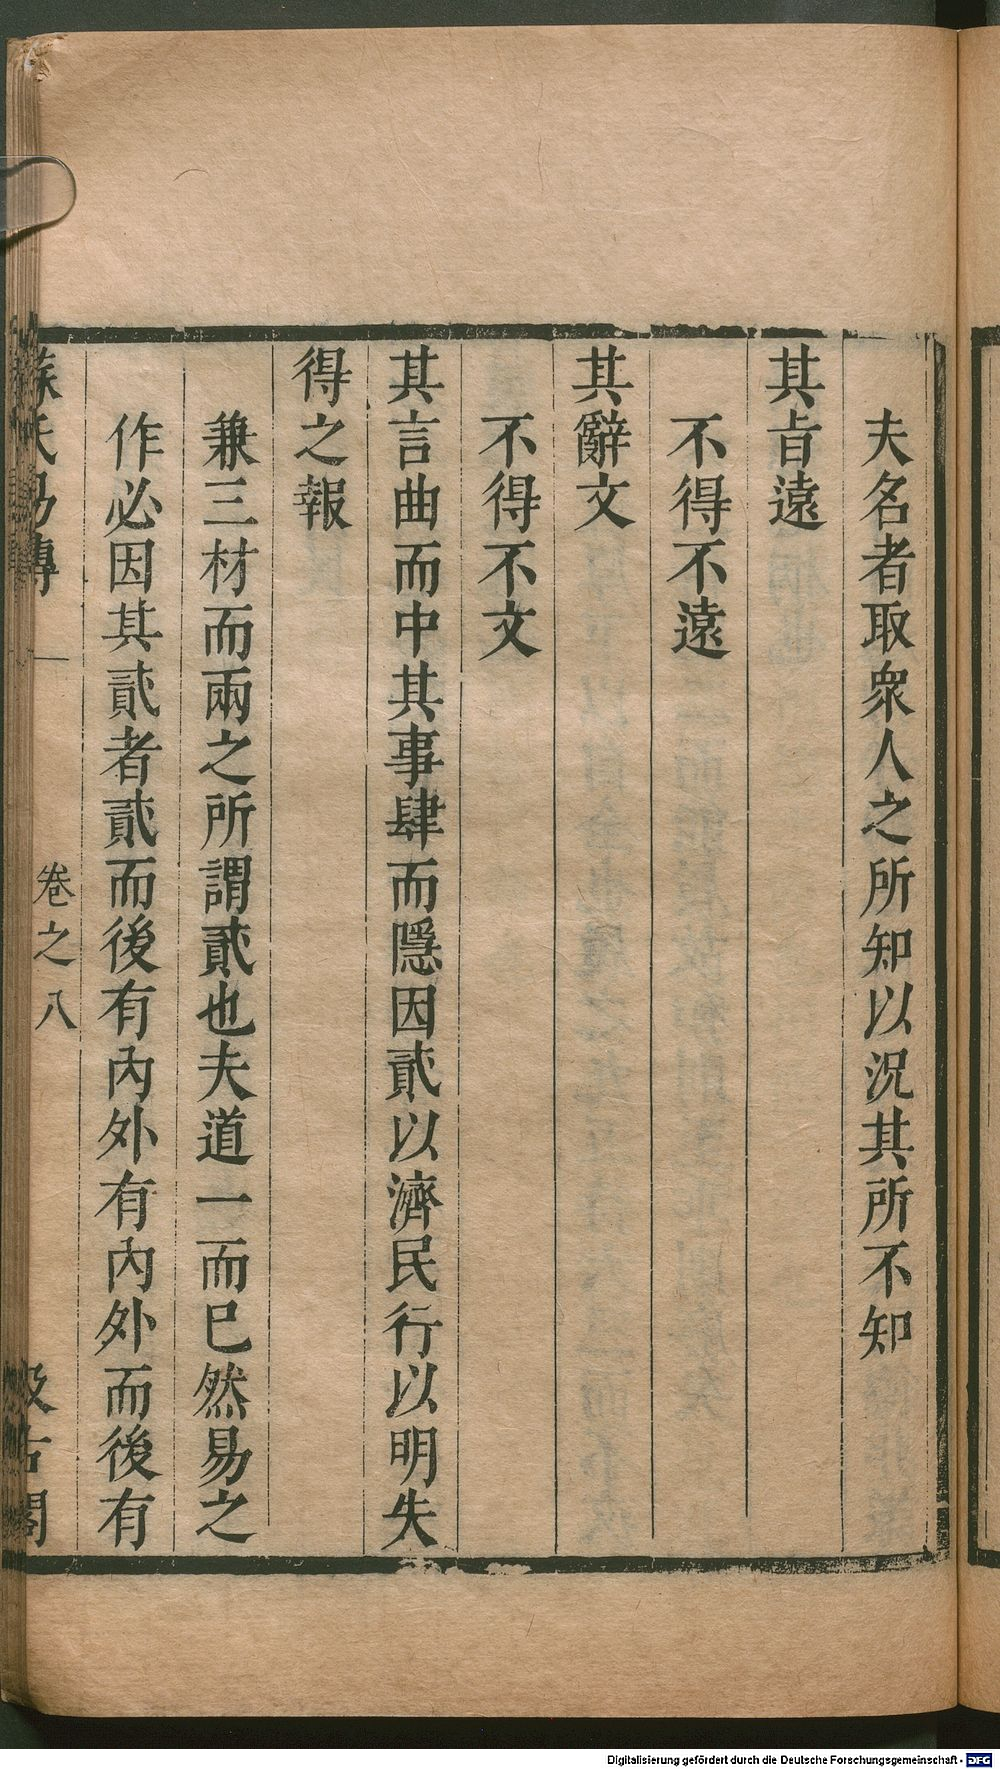 夫名者取衆人之所知以況其所不知
其旨遠
不得不遠
其辭文
不得不文
其言曲而中其事肆而隱因貳以濟民行以明失
得之報
兼三材而兩之所謂貳也夫道一而已然易之
作必因其貳者貳而後有內外有內外而後有
蘇氏易傳
卷之八
汲古閣
Digitalisierung gefördert durch die Deutsche Forschungsgemeinschaft - DFG